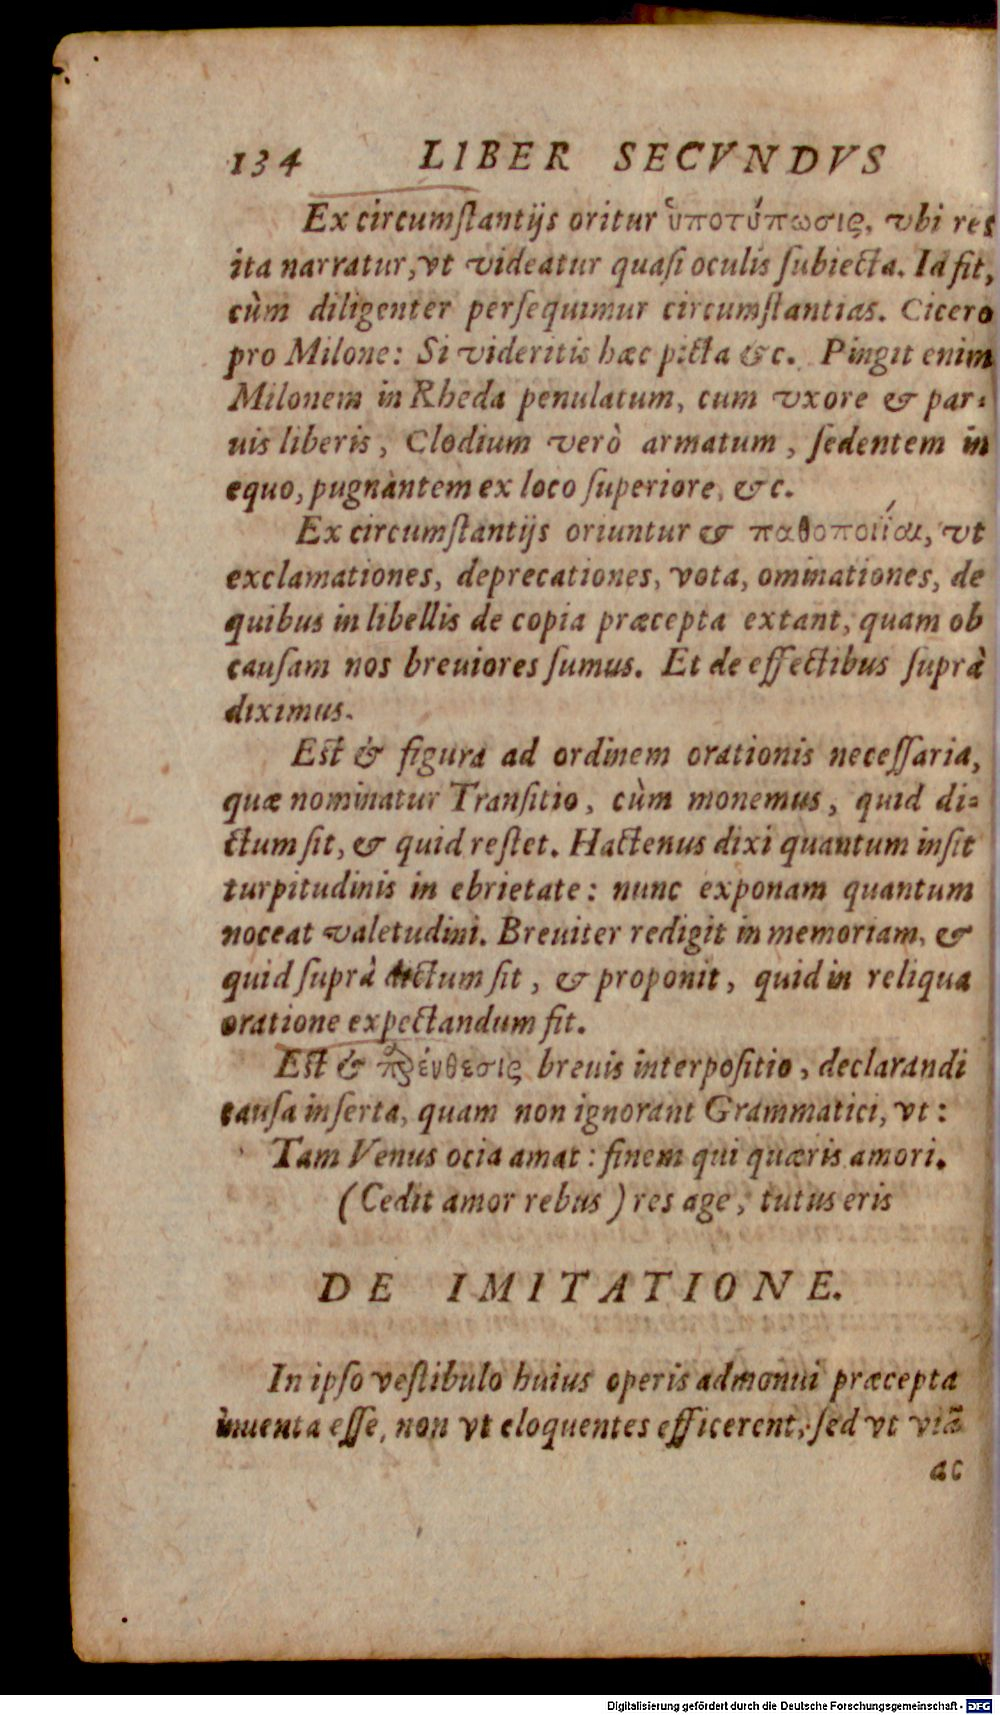 134 LIBER SECVNDVS
Ex circumſtantijs oritur ὑποτύπωσις, vbi res
ita narratur, vt videatur quaſi oculis ſubiecta. Id fit,
cùm diligenter perſequimur circumſtantias. Cicero
pro Milone: Si videritis hæc picta &c. Pingit enim
Milonem in Rheda penulatum, cum vxore & par-
uis liberis, Clodium verò armatum, ſedentem in
equo, pugnàntem ex loco ſuperiore, &c.
Ex circumſtantijs oriuntur & παθοποιΐαι, vt
exclamationes, deprecationes, vota, ominationes, de
quibus in libellis de copia præcepta extant, quam ob
cauſam nos breuiores ſumus. Et de effectibus ſuprà
diximus.
Eſt & figura ad ordinem orationis neceſſaria,
quæ nominatur Tranſitio, cùm monemus, quid di-
ctum ſit, & quid reſtet. Hactenus dixi quantum inſit
turpitudinis in ebrietate: nunc exponam quantum
noceat valetudini. Breuiter redigit in memoriam, &
quid ſuprà dictum ſit, & proponit, quid in reliqua
oratione expectandum ſit.
Eſt & παρένθεσις breuis interpoſitio, declarandi
cauſa inſerta, quam non ignorant Grammatici, vt:
Tam Venus ocia amat: finem qui quæris amori.
(Cedit amor rebus) res age, tutus eris
DE IMITATIONE.
In ipſo veſtibulo huius operis admonui præcepta
inuenta eſſe, non vt eloquentes efficerent, ſed vt viã
ac
Digitalisierung gefördert durch die Deutsche Forschungsgemeinschaft - DFG